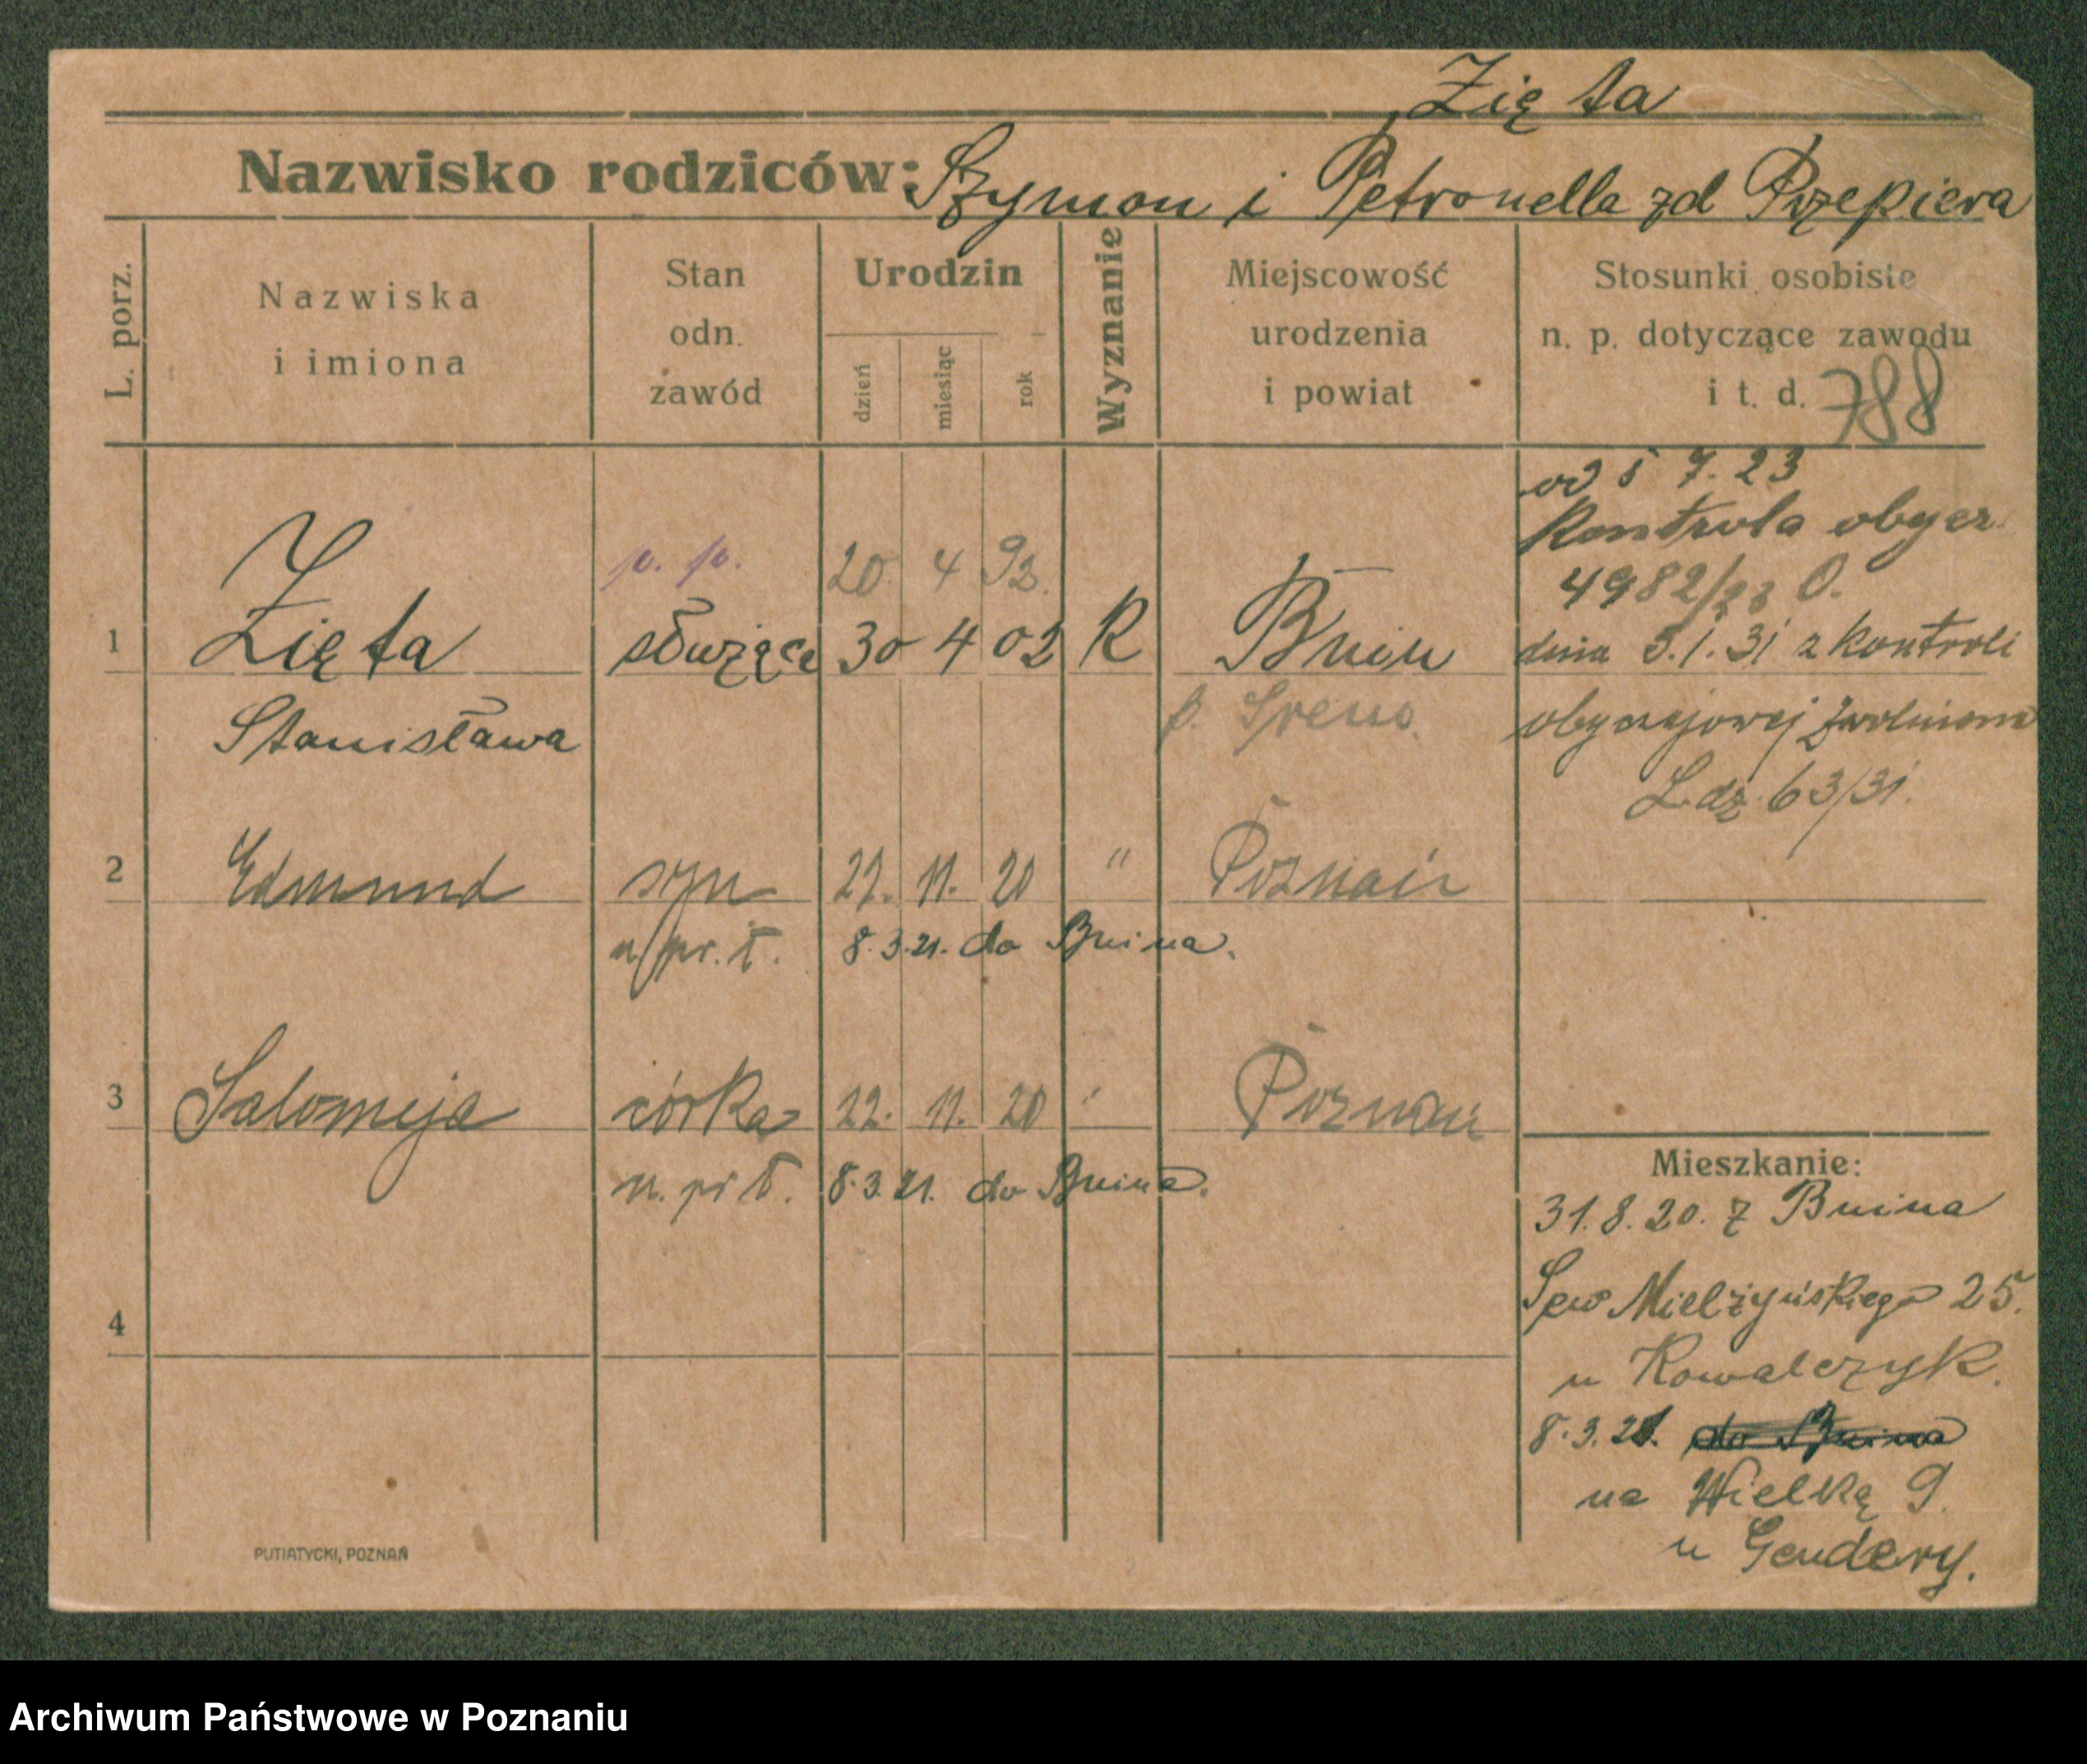 Zięta
Nazwisko rodziców: Szymon i Petronella zd Przepiera
L. porz.
Nazwiska
i imiona
Stan
odn.
zawód
Urodzin
dzień
miesiąc
rok
Wyznanie
Miejscowość
urodzenia
i powiat
Stosunki osobiste
n. p. dotyczące zawodu
i t. d. 788
od 5 7. 23
Kontrola obycz.
4982/23 O.
p. p. 20. 4 92.
1 Zięta służąca 30 4 02 R Bnin
dnia 5.1.31 z kontroli
Stanisława p. Srem.
obyczajowej zwolniona
L.dz. 63/31.
2 Edmund syn 22. 11. 20 " Poznań
n/pr. ł. 8.3.21. do Bnina.
3 Salomeja córka 22. 11. 20 " Poznań
n. pr ł. 8.3.21. do Bnina.
4
Mieszkanie:
31.8.20. z Bnina
Sew Mielżyńskiego 25.
u Kowalczyk.
8.3.21. do Bnina
na Wielką 9.
u Gendery.
PUTIATYCKI, POZNAŃ
Archiwum Państwowe w Poznaniu